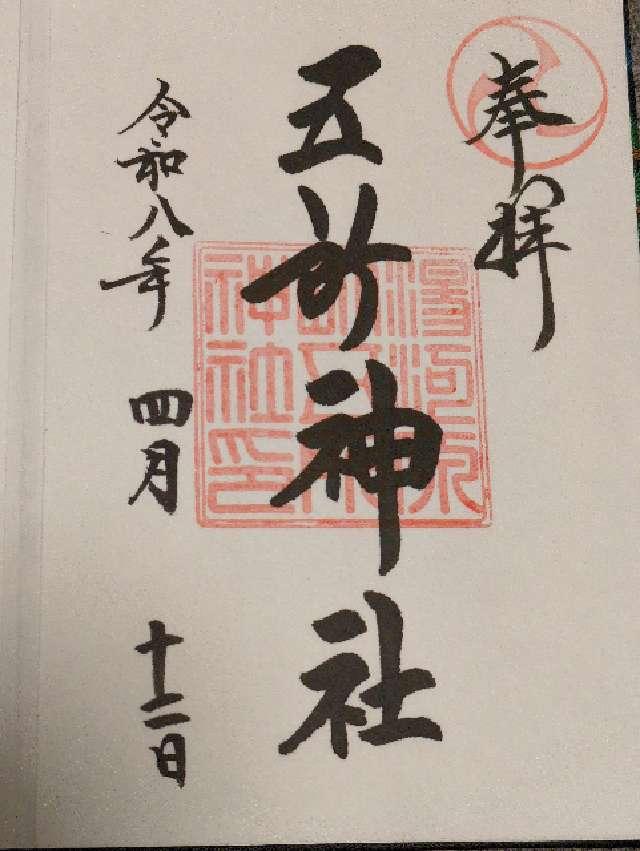 奉拝
五所神社
湯河原
町五所
神社印
令和八年 四月 十二日